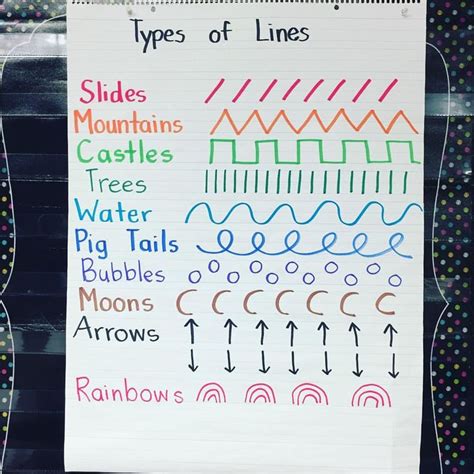 Types of Lines
Slides
Mountains
Castles
Trees
Water
Pig Tails
Bubbles
Moons
Arrows
Rainbows